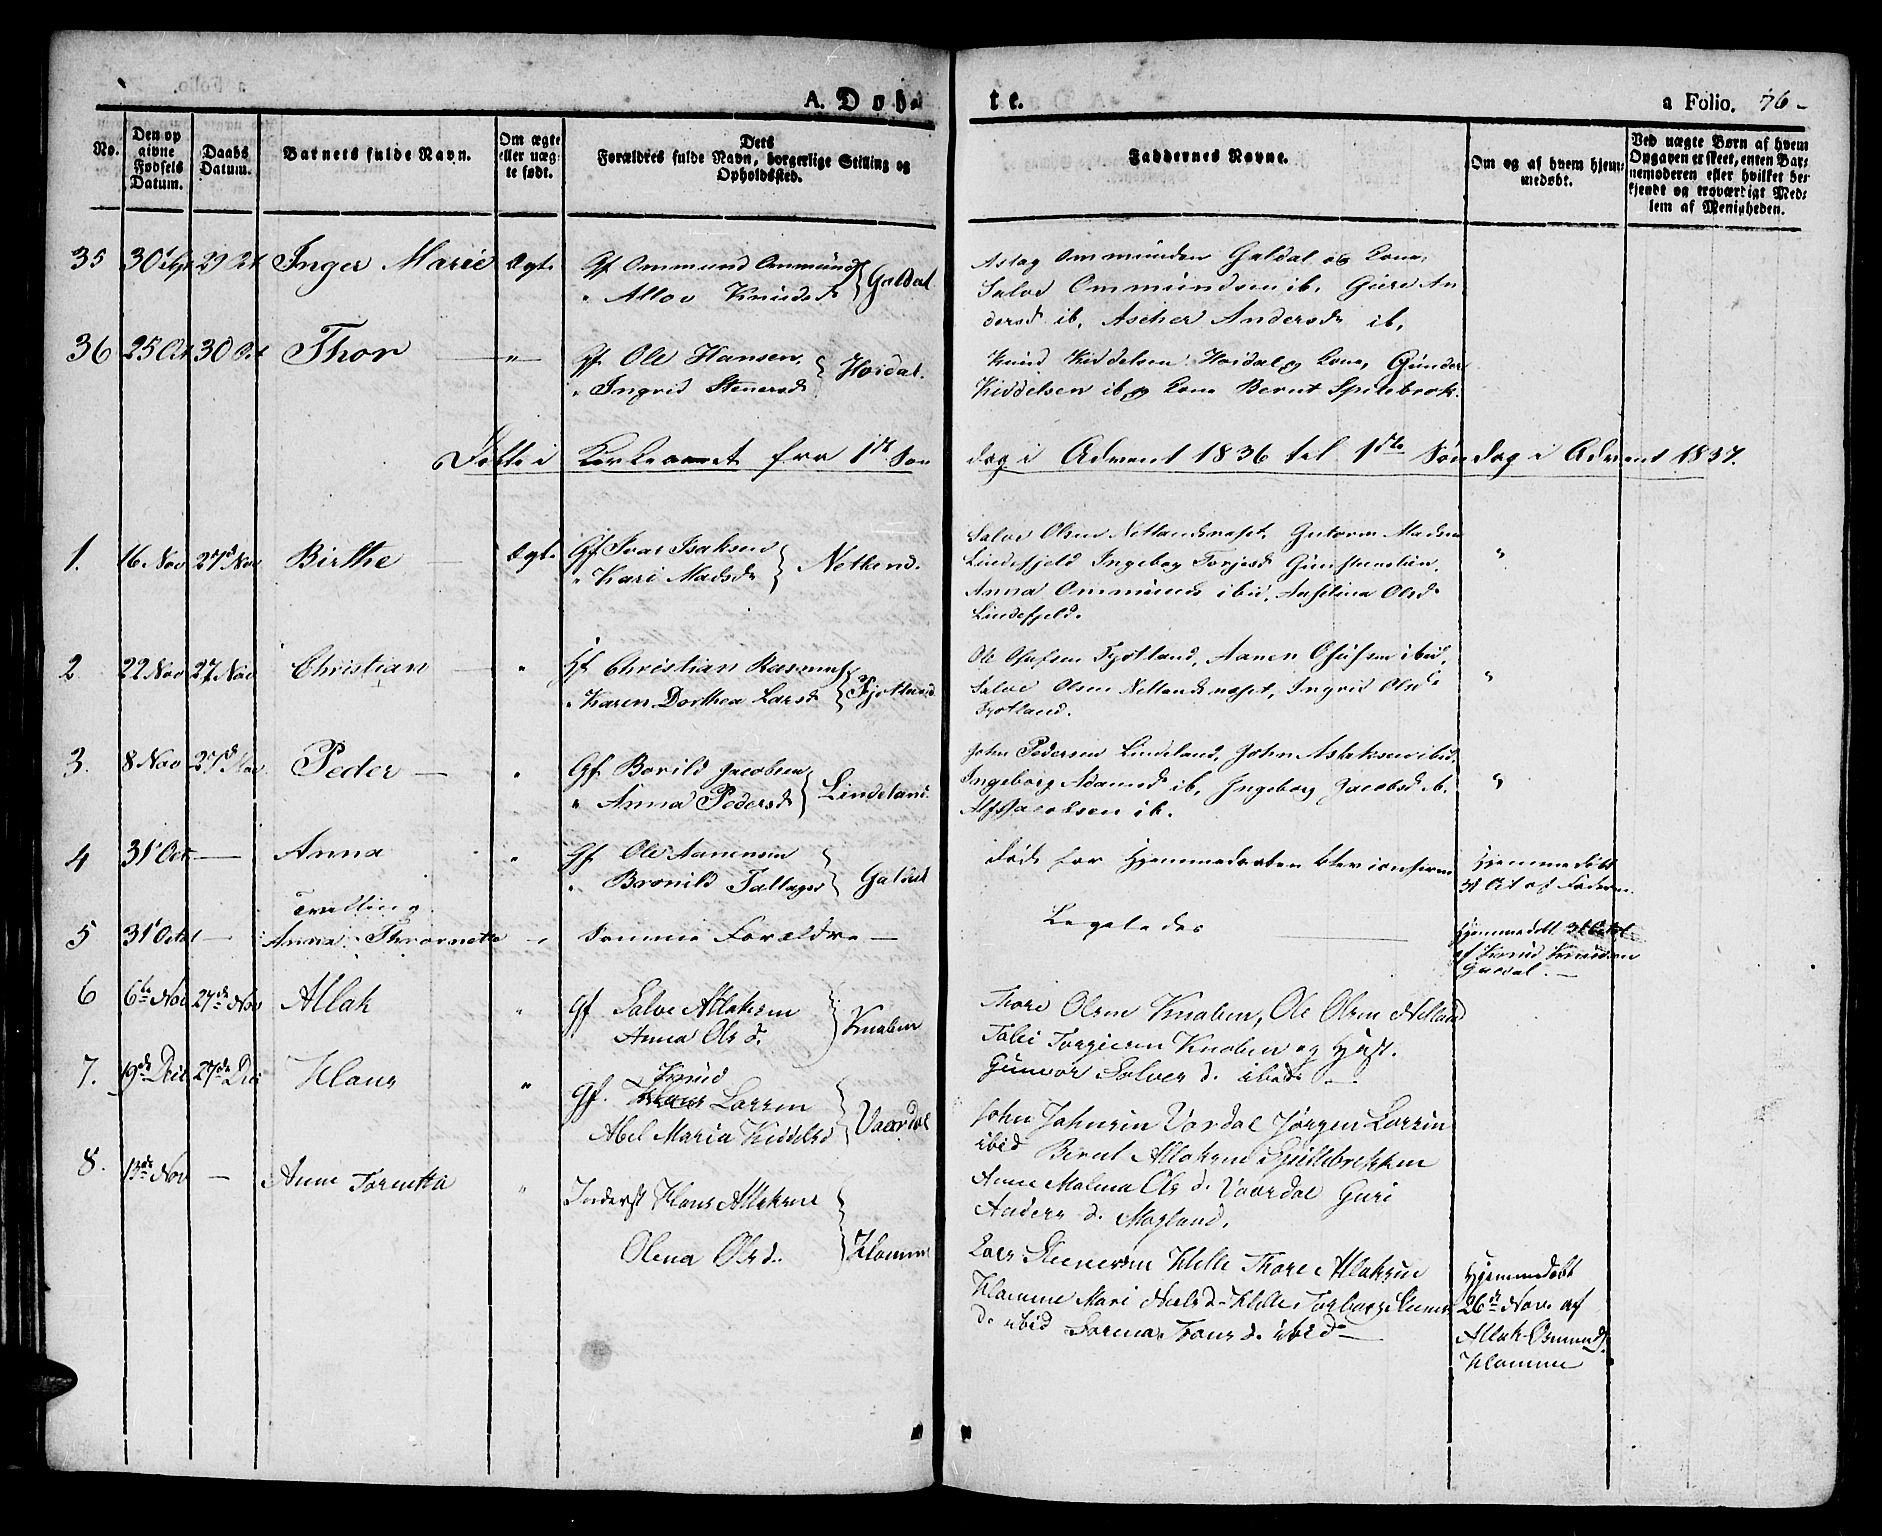 A. Døb-
te.
a Folio. 76-
No.
Den op
givne
Fødsels
Datum.
Daabs
Datum.
Barnets fulde Navn.
Om ægte
eller uæg-
te født.
Dets
Forældres fulde Navn, borgerlige Stilling og
Opholdssted.
Faddernes Navne.
Om og af hvem hjem-
medøbt.
Ved uægte Børn af hvem
Opgaven er skeet, enten Bar-
nemoderen eller hvilket be-
kjendt og troværdigt Med-
lem af Menigheden.
35 30 Sept 29 Oct Inger Marie Ægt. Gf Ommund Ommunds
" Knudsd Galdal
Aslag Ommundsen Galdal og Kone,
Salve Ommundsen ib. Guri An
dersd ib, Ascher Andersd ib.
36 25 Oct 30 Oct Thor " Gf. Ole Hansen,
" Ingrid Stenersd Hoidal.
Knud Kiddelsen Hoidal og Kone, Gunder
Kiddelsen ib og Kone Bernt Spilebrok.
Døbte i Kirkeaaret fra 1ste Søn
dag i Advent 1836 til 1ste Søndag i Advent 1837.
1. 16 Nov 27de Nov Birthe Ægt. Gf Ivar Isaksen
" Kari Madsd Netland.
Salve Olsen Netlandsnæset, Gutorm Madsen
Lindefjeld Ingeborg Torjesd
Anna Ommunds ibid, Olsd
Lindefjeld.
"
2 22 Nov 27 Nov Christian " Gf Christian Rasmus
" Karen Dorthea Larsd Fjotland
Ole Fjotland, Aanen ibid,
Salve Olsen Netlandsnæset, Ingrid Olsd
Fjotland.
"
3. 8 Nov 27de Nov Peder " Gf. Bovild Jacobsen
" Anna Pedersd Lindeland.
John Pedersen Lindeland, John Aslaksen ibid.
Ingeborg Adamsd ib, Ingeborg Jacobsd ib.
Alf Jacobsen ib.
"
4 31 Oct — Anna " Gf. Ole Aanensen
" Bronild Tallagsd Galdal
Død før Hjemmedaaben blev
Hjemmedøbt
31 Oct af Faderen.
Tvilling
5 31 Oct — Anna Samme Forældre —
Ligeledes
Hjemmedøbt 31 Octob
af Knud Knudsen
Galdal. —
6 6te Nov 27de Nov Allak " Gf Salve Allaksen
Anna Olsd. Knaben
Thore Olsen Knaben, Ole Olsen Netland
Torgiersen Knaben og Hust.
Gunvor Salvesd. ibid —
7. 19de Dec 27de Dec Klaus " Gf. Knud
Klaus Larsen
Abel Maria Kiddelsd Vaardal
John Johnsen Vardal Jørgen Larsen
ibid Bernt Allaksen Spillebrekken
Anne Malena Olsd. Vaardal Guri
Andersd. Mogland.
8. 13de Nov — Anne Torentta " Inderst Klaus Allaksen
Olena Olsd. Klomme
Lars Stenersen Helle Thore Allaksen
Klomme Mari Nielsd. Helle Torborg Stener
d. ibid Tonesd. ibid —
Hjemmedøbt
26de Nov. af
Allak Osmunds.
Klomme